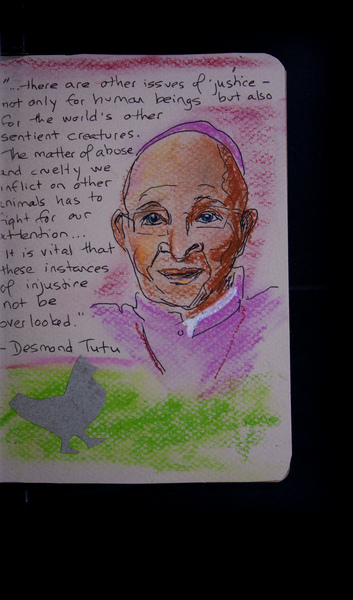 "...there are other issues of justice –
not only for human beings but also
for the world's other
sentient creatures.
The matter of abuse
and cruelty we
inflict on other
animals has to
fight for our
attention...
It is vital that
these instances
of injustice
not be
overlooked."
– Desmond Tutu